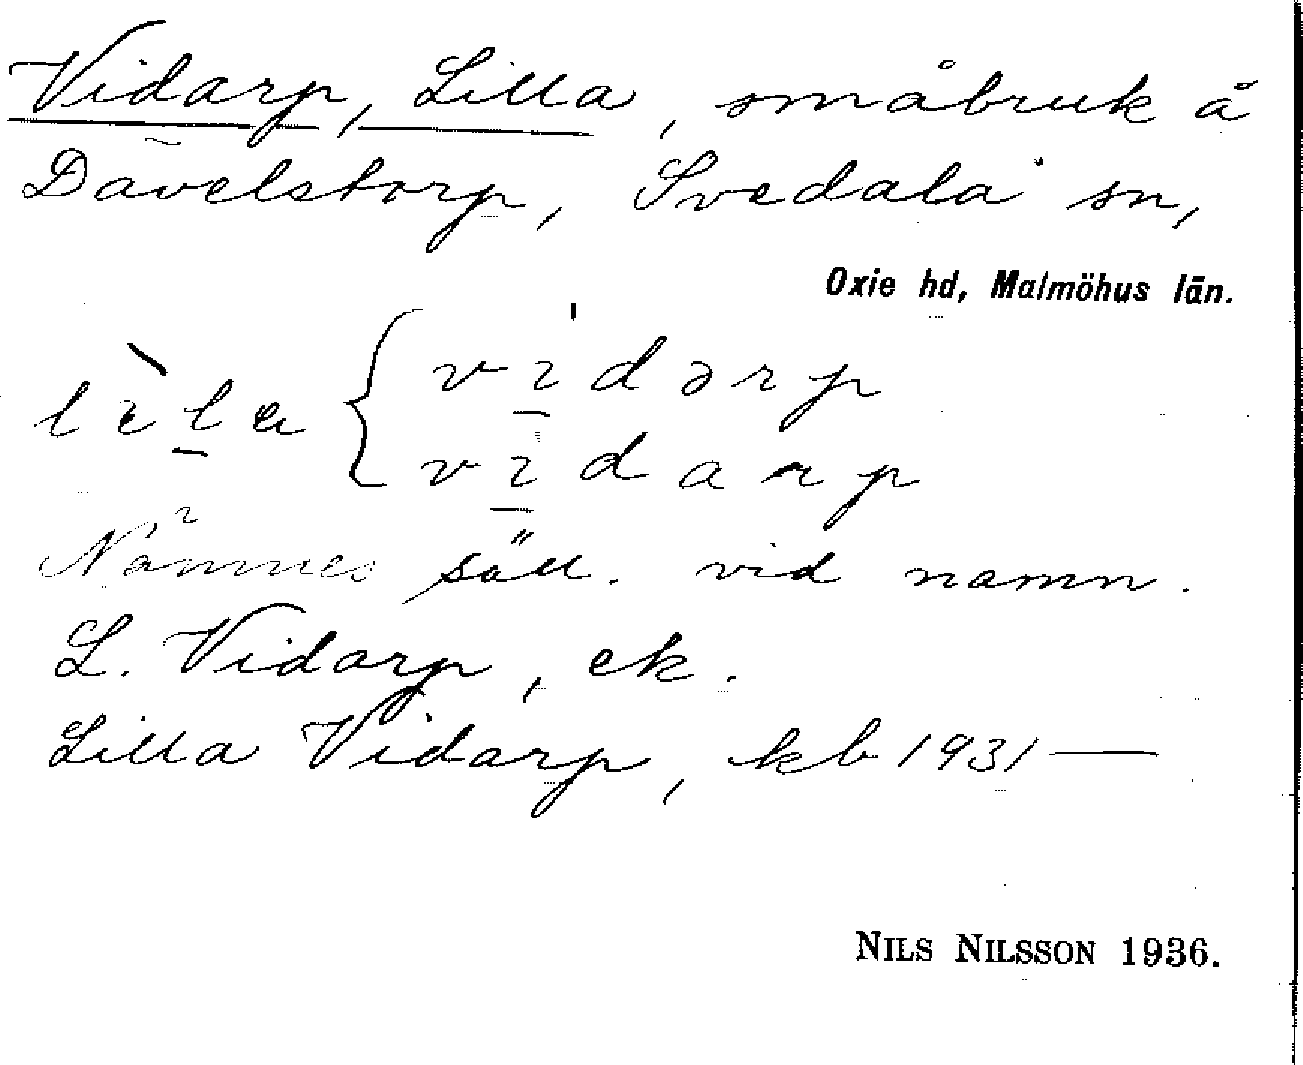 Vidarp, Lilla, småbruk å
Davelstorp, Svedala sn,
Oxie hd, Malmöhus län.
lìla { vidərp
vidarp
Nämnes säll. vid namn.
L. Vidarp, ek.
Lilla Vidarp, kb 1931—
NILS NILSSON 1936.